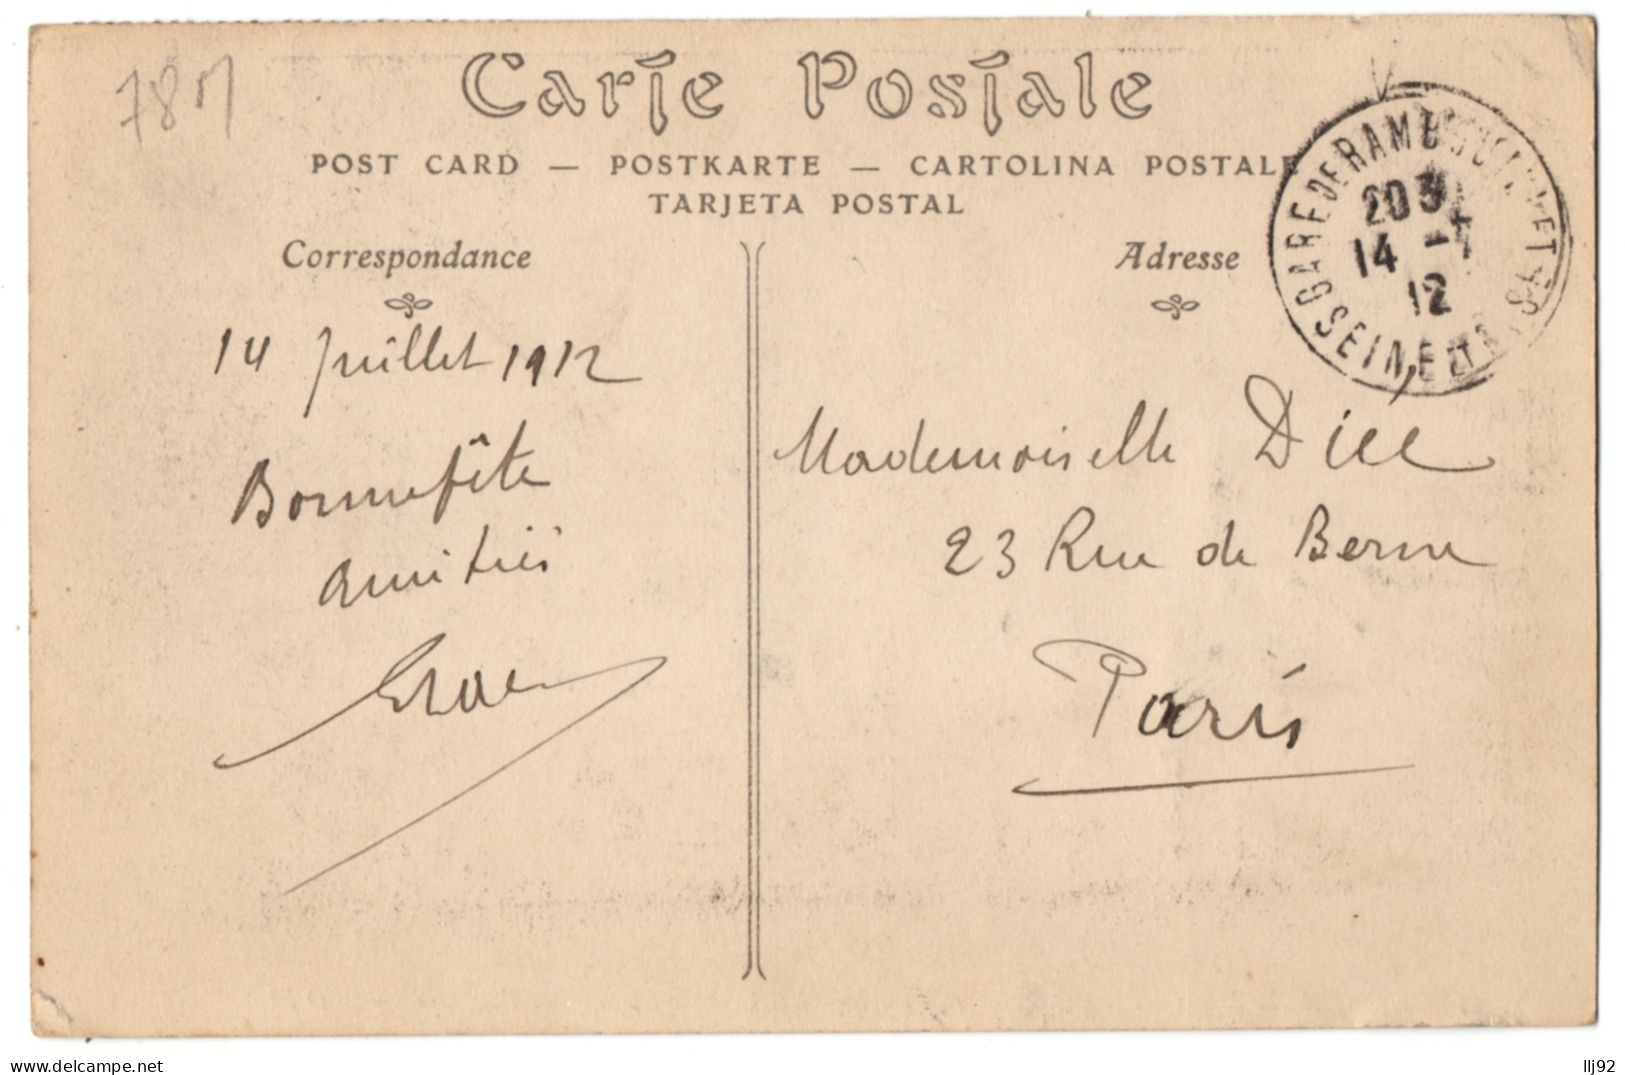 78
Carte Postale
POST CARD — POSTKARTE — CARTOLINA POSTALE
TARJETA POSTAL
Correspondance
Adresse
GARE DE RAMBOUILLET
SEINE ET
20
14 -7
12
14 Juillet 1912
Bonne fête
amitiés
Mademoiselle
23 Rue de Berne
Paris
llj92